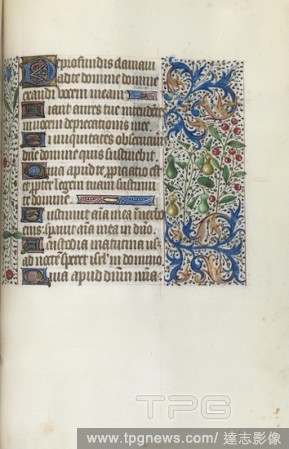 De profundis clamaui
ad te domine domine
exaudi vocem meam
Fiant aures tue
deprecationis mee
Si iniquitates
dñe domine quis sustinebit
Quia apud te propiciatio est
et propter legem tuam sustinui
te domine
Sustinuit aĩa mea in verbo
eius sperauit aĩa mea in dño
A custodia matutina usq
ad noctē speret isrl in domino
Quia apud dñm mia
TPG
www.tpgnews.com/ 達志影像